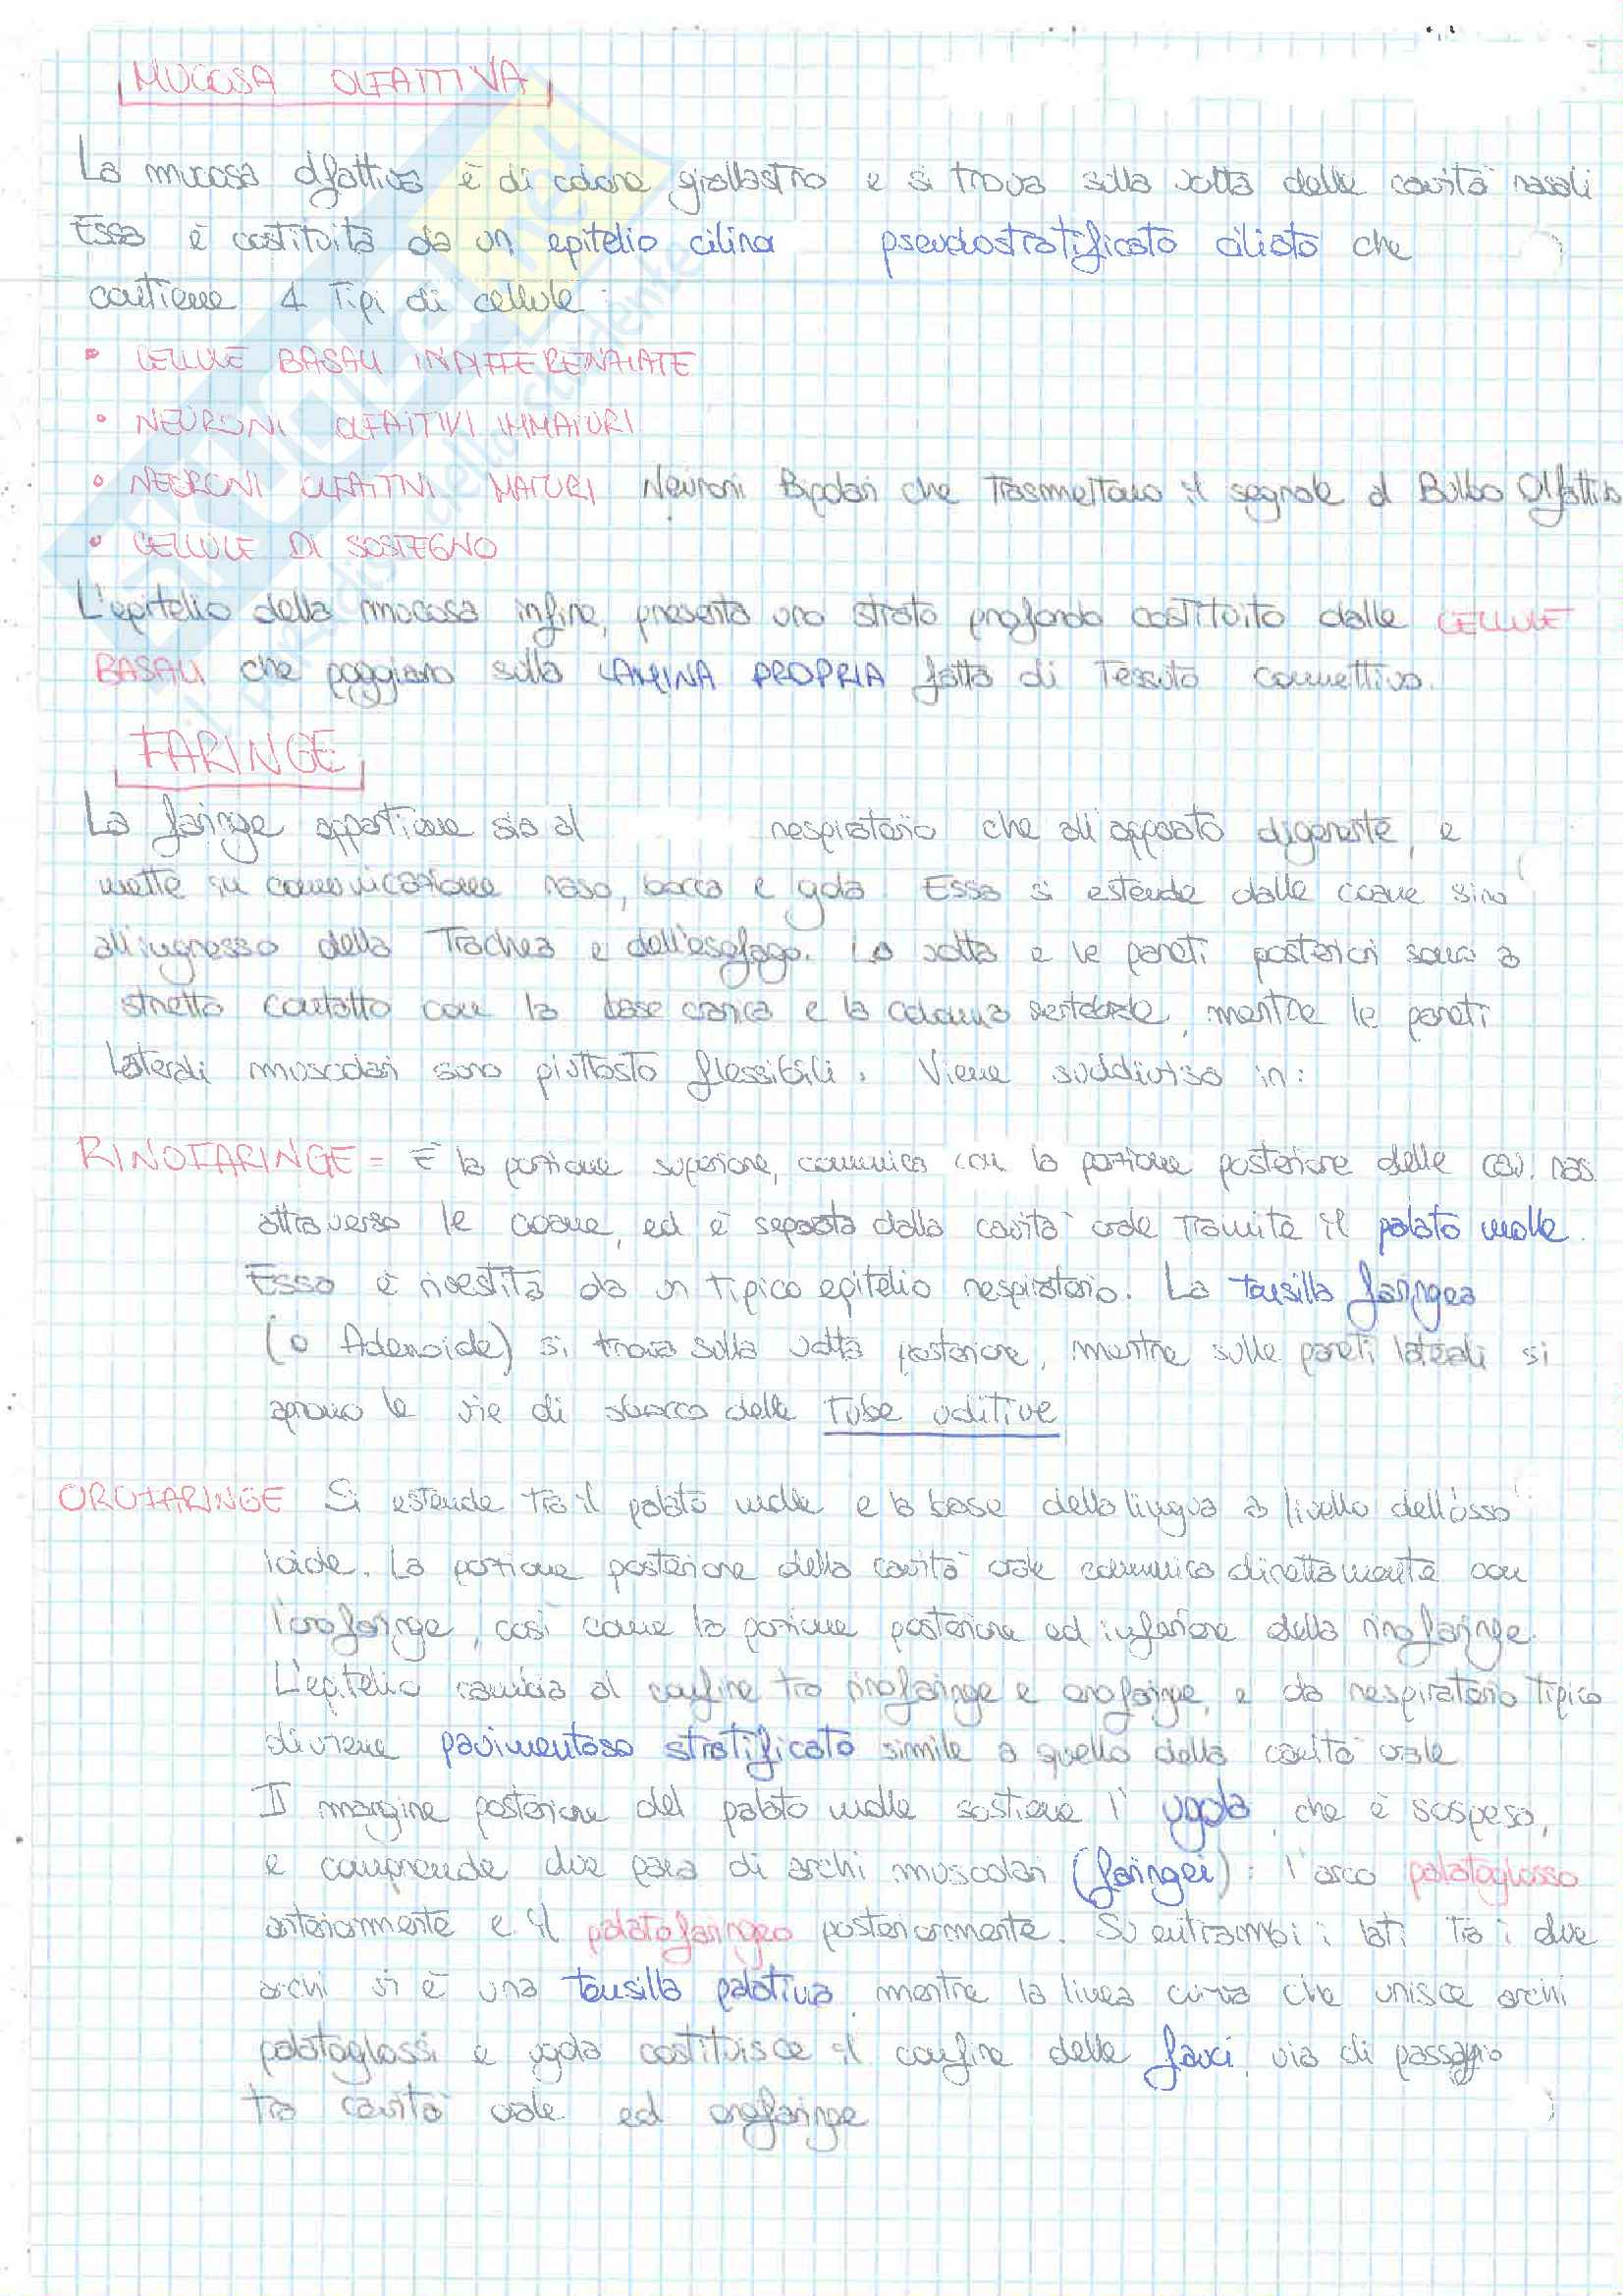 MUCOSA OLFATTIVA
La mucosa olfattiva è di colore giallastro e si trova sulla volta delle cavità nasali
Essa è costituita da un epitelio cilin pseudostratificato ciliato che
contiene 4 Tipi di cellule:
• CELLULE BASALI INDIFFERENZIATE
• NEURONI OLFATTIVI IMMATURI
• NEURONI OLFATTIVI MATURI Neuroni Bipolari che Trasmettono il segnale al Bulbo Olfattivo
• CELLULE DI SOSTEGNO
L'epitelio della mucosa infine, presenta uno strato profondo costituito dalle CELLULE
BASALI che poggiano sulla LAMINA PROPRIA fatta di Tessuto connettivo.
FARINGE
La faringe appartiene sia al respiratorio che all'apparato digerente, e
mette in comunicazione naso, bocca e gola. Essa si estende dalle coane sino
all'ingresso della Trachea e dell'esofago. La volta e le pareti posteriori sono a
stretto contatto con la base cranica e la colonna vertebrale, mentre le pareti
laterali muscolari sono piuttosto flessibili. Viene suddivisa in:
RINOFARINGE = È la porzione superiore, comunica con la porzione posteriore delle cav. nas.
attraverso le coane, ed è separata dalla cavità orale Tramite il palato molle.
Essa è rivestita da un tipico epitelio respiratorio. La tonsilla faringea
(o Adenoide) si trova sulla volta posteriore, mentre sulle pareti laterali si
aprono le vie di sbocco delle Tube uditive
OROFARINGE Si estende tra il palato molle e la base della lingua a livello dell'osso
ioide. La porzione posteriore della cavità orale comunica direttamente con
l'orofaringe, così come la porzione posteriore ed inferiore della rinofaringe.
L'epitelio cambia al confine tra rinofaringe e orofaringe, e da respiratorio Tipico
diviene pavimentoso stratificato simile a quello della cavità orale
Il margine posteriore del palato molle sostiene l'ugola, che è sospesa,
e comprende due paia di archi muscolari (faringei): l'arco palatoglosso
anteriormente e il palatofaringeo posteriormente. Su entrambi i lati tra i due
archi vi è una tonsilla palatina, mentre la linea curva che unisce archi
palatoglossi e ugola costituisce il confine delle fauci, via di passaggio
tra cavità orale ed orofaringe